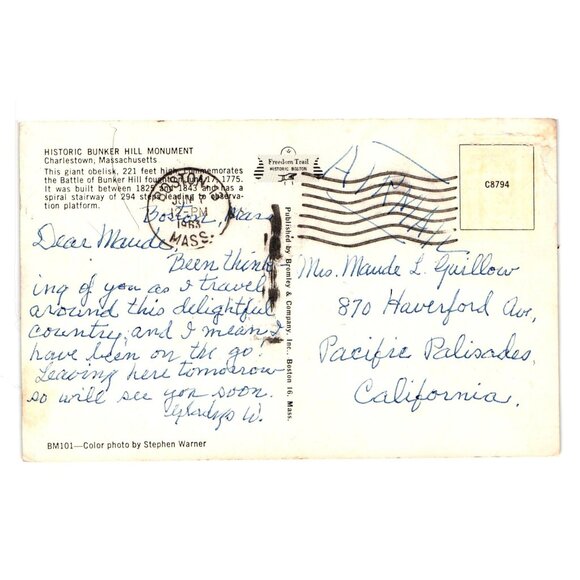 HISTORIC BUNKER HILL MONUMENT
Charlestown, Massachusetts
This giant obelisk, 221 feet high, commemorates
the Battle of Bunker Hill fought on June 17, 1775.
It was built between 1825 and 1843 and has a
spiral stairway of 294 steps leading to observa-
tion platform.
BOSTON
12-PM
1963
MASS.
Freedom Trail
HISTORIC BOSTON
AIRMAIL
C8794
Boston, Mass
Dear Maude,
Been think-
ing of you as I travel
around this delightful
country, and I mean I
have been on the go!
Leaving here tomorrow
so will see you soon.
Gladys W.
Published by Bromley & Company, Inc., Boston 16, Mass.
Mrs. Maude L. Guillow
870 Haverford Ave,
Pacific Palisades,
California.
BM101—Color photo by Stephen Warner